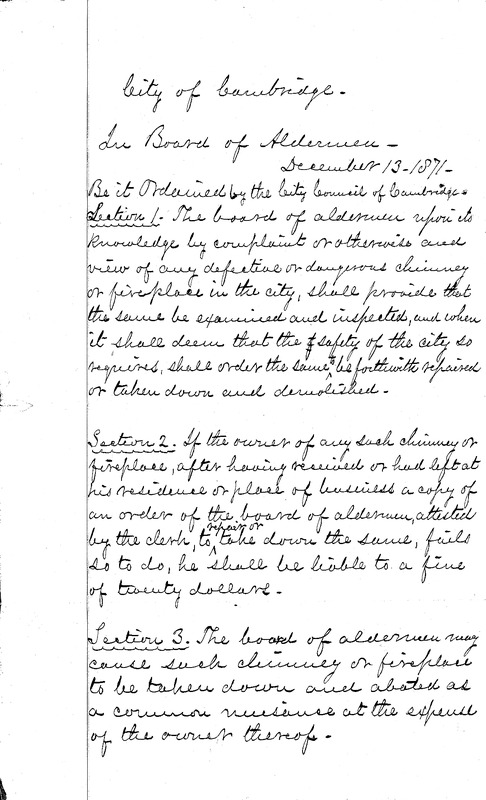 City of Cambridge.
In Board of Aldermen -
December 13-1871-
Be it Ordained by the City Council of Cambridge.
Section 1. The board of aldermen upon its
knowledge by complaint or otherwise and
view of any defective or dangerous chimney
or fireplace in the city, shall provide that
the same be examined and inspected, and when
it shall deem that the safety of the city so
requires, shall order the same to be forthwith repaired
or taken down and demolished.
Section 2. If the owner of any such chimney or
fireplace, after having received or had left at
his residence or place of business a copy of
an order of the board of aldermen, attested
by the clerk, to repair or take down the same, fails
so to do, he shall be liable to a fine
of twenty dollars.
Section 3. The board of aldermen may
cause such chimney or fireplace
to be taken down and abated as
a common nuisance at the expense
of the owner thereof.